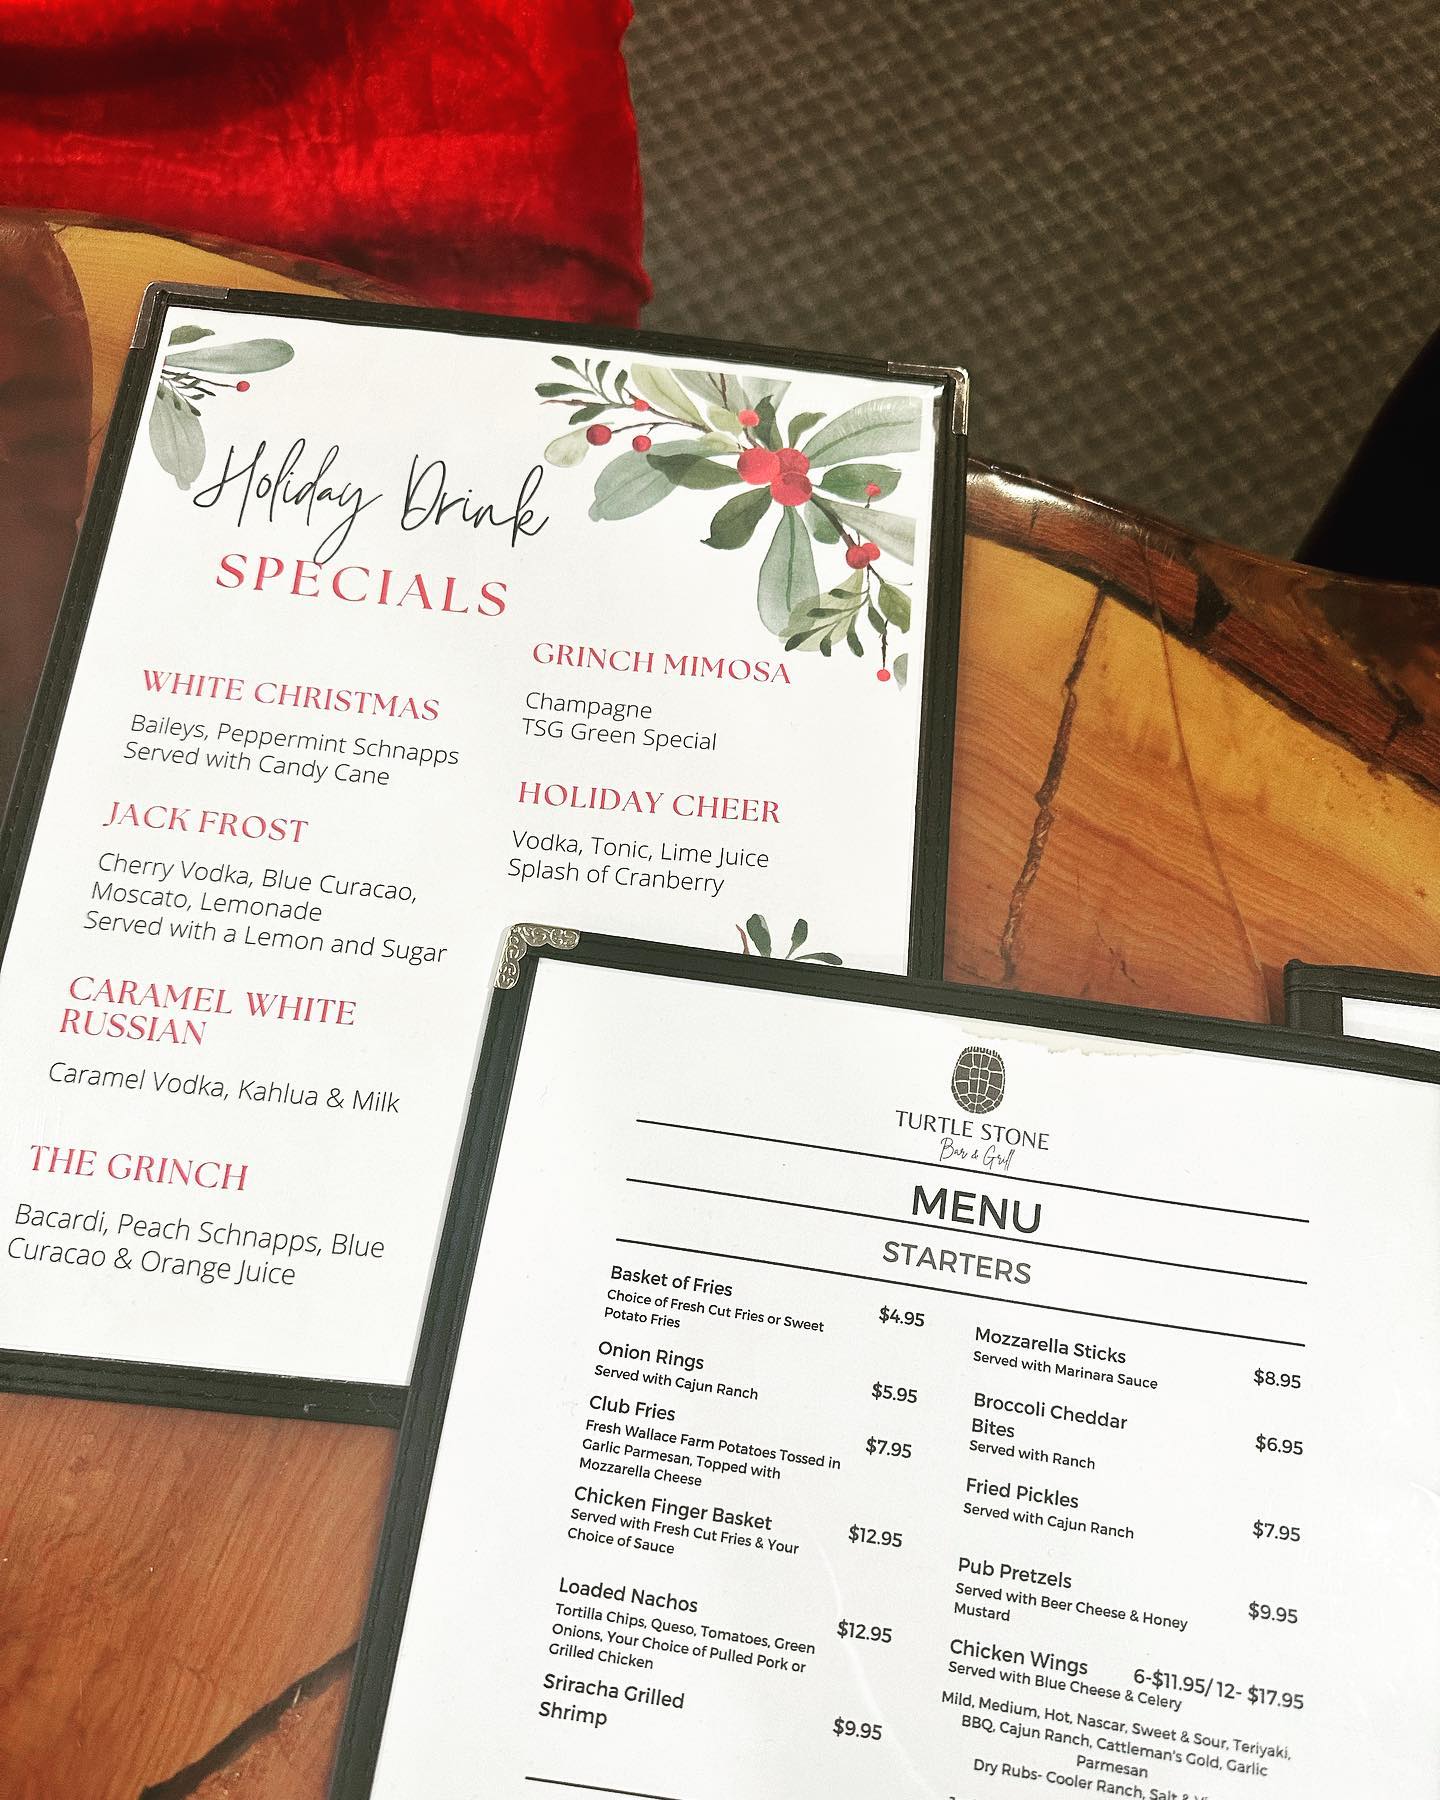 Holiday Drink
SPECIALS
WHITE CHRISTMAS
Baileys, Peppermint Schnapps
Served with Candy Cane
JACK FROST
Cherry Vodka, Blue Curacao,
Moscato, Lemonade
Served with a Lemon and Sugar
CARAMEL WHITE
RUSSIAN
Caramel Vodka, Kahlua & Milk
THE GRINCH
Bacardi, Peach Schnapps, Blue
Curacao & Orange Juice
GRINCH MIMOSA
Champagne
TSG Green Special
HOLIDAY CHEER
Vodka, Tonic, Lime Juice
Splash of Cranberry
TURTLE STONE
Bar & Grill
MENU
STARTERS
Basket of Fries
Choice of Fresh Cut Fries or Sweet
Potato Fries
$4.95
Onion Rings
Served with Cajun Ranch
$5.95
Club Fries
Fresh Wallace Farm Potatoes Tossed in
Garlic Parmesan, Topped with
Mozzarella Cheese
$7.95
Chicken Finger Basket
Served with Fresh Cut Fries & Your
Choice of Sauce
$12.95
Loaded Nachos
Tortilla Chips, Queso, Tomatoes, Green
Onions, Your Choice of Pulled Pork or
Grilled Chicken
$12.95
Sriracha Grilled
Shrimp
$9.95
Mozzarella Sticks
Served with Marinara Sauce
$8.95
Broccoli Cheddar
Bites
Served with Ranch
$6.95
Fried Pickles
Served with Cajun Ranch
$7.95
Pub Pretzels
Served with Beer Cheese & Honey
Mustard
$9.95
Chicken Wings 6-$11.95/ 12- $17.95
Served with Blue Cheese & Celery
Mild, Medium, Hot, Nascar, Sweet & Sour, Teriyaki,
BBQ, Cajun Ranch, Cattleman's Gold, Garlic
Parmesan
Dry Rubs- Cooler Ranch, Salt &